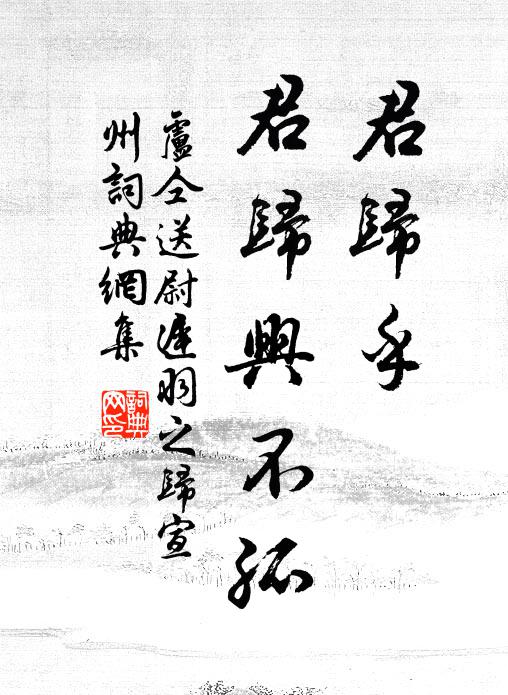 君歸乎
君歸興不孤
盧仝送尉遲羽之歸宣
州詞典網集
詞典
网印